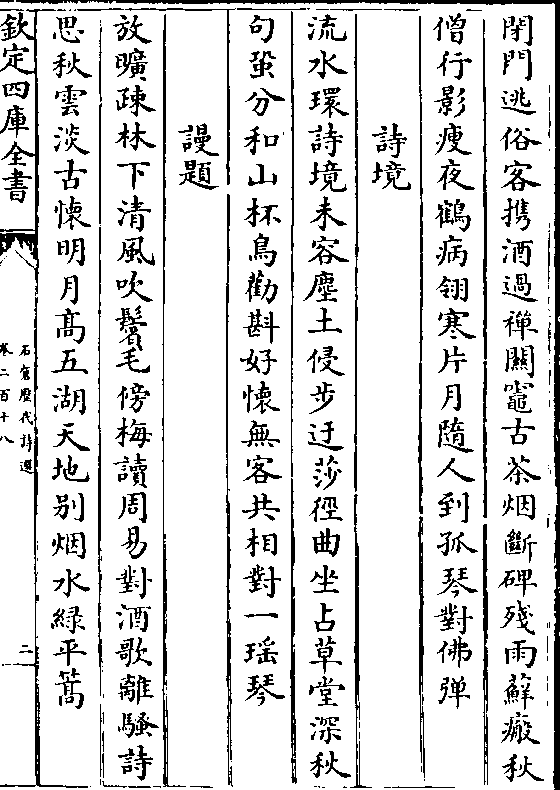 閉門逃俗客携酒過禪關竈古茶烟斷碑殘雨蘚瘢秋
僧行影瘦夜鶴病翎寒片月隨人到孤琴對佛弹
詩境
流水環詩境未容塵土侵步迂莎徑曲坐占草堂深秋
句蛩分和山杯鳥勸斟好懷無客共相對一瑶琴
謾題
放曠疎林下清風吹鬢毛傍梅讀周易對酒歌離騷詩
思秋雲淡古懷明月髙五湖天地别烟水緑平篙
欽定四庫全書
石倉歴代詩選
卷二百十八
二